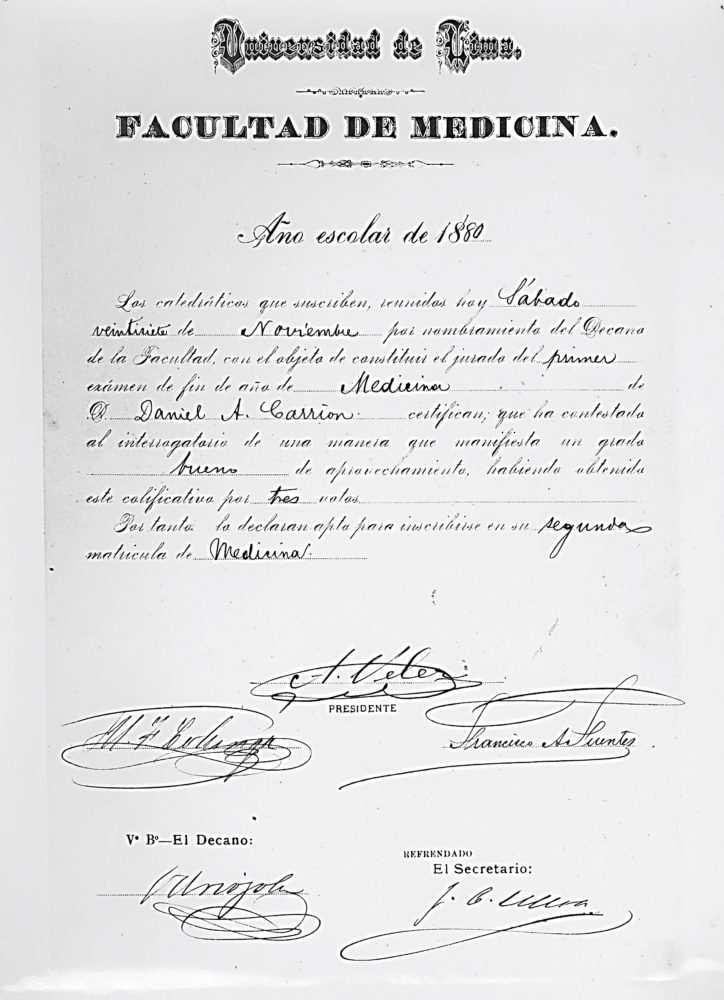 Universidad de Lima.
FACULTAD DE MEDICINA.
Año escolar de 1880
Los catedráticos que suscriben, reunidos hoy Sábado
veintisiete de Noviembre por nombramiento del Decano
de la Facultad, con el objeto de constituir el jurado del primer
exámen de fin de año de Medicina de
D. Daniel A. Carrion. certifican; que ha contestado
al interrogatorio de una manera que manifiesta un grado
bueno de aprovechamiento, habiendo obtenido
este calificativo por tres votos
Por tanto lo declaran apto para inscribirse en su segunda
matrícula de Medicina.
A. Velez
PRESIDENTE
M. F.
Francisco A. Fuentes.
Vº Bº—El Decano:
REFRENDADO
El Secretario:
J. C. Ulloa